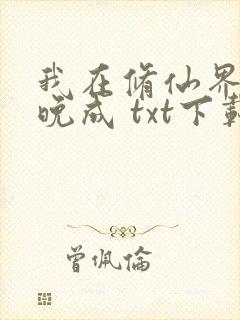 我在修仙界
晚成 txt下載
曾佩倫